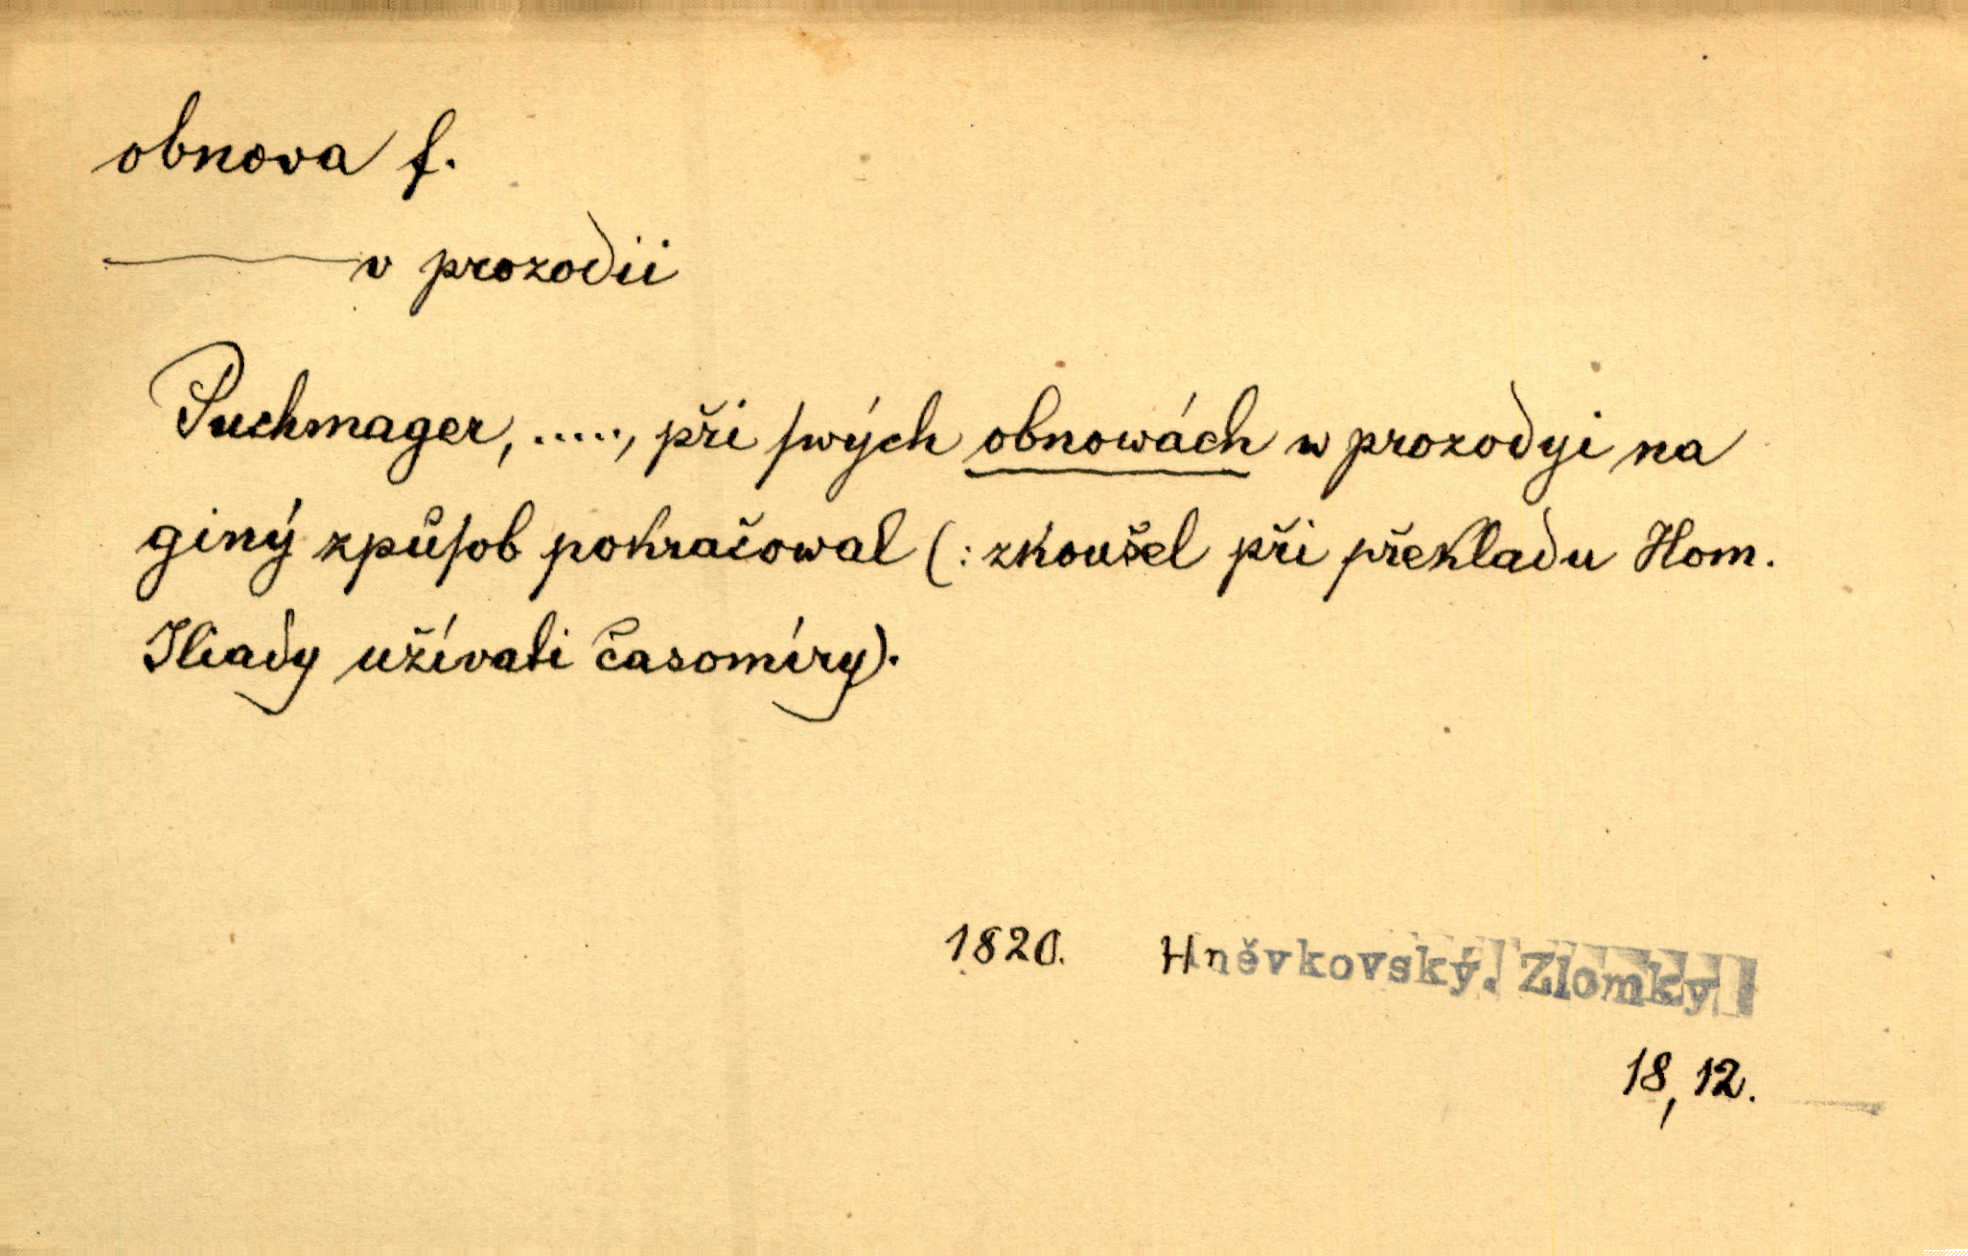 obnova f.
——— v prozodii
Puchmager, ....., při ſwých obnowách w prozodyi na
giný zpuͦſob pokračowal (: zkoušel při překladu Hom.
Iliady užívati časomíry).
1820. Hněvkovský. Zlomky
18, 12.